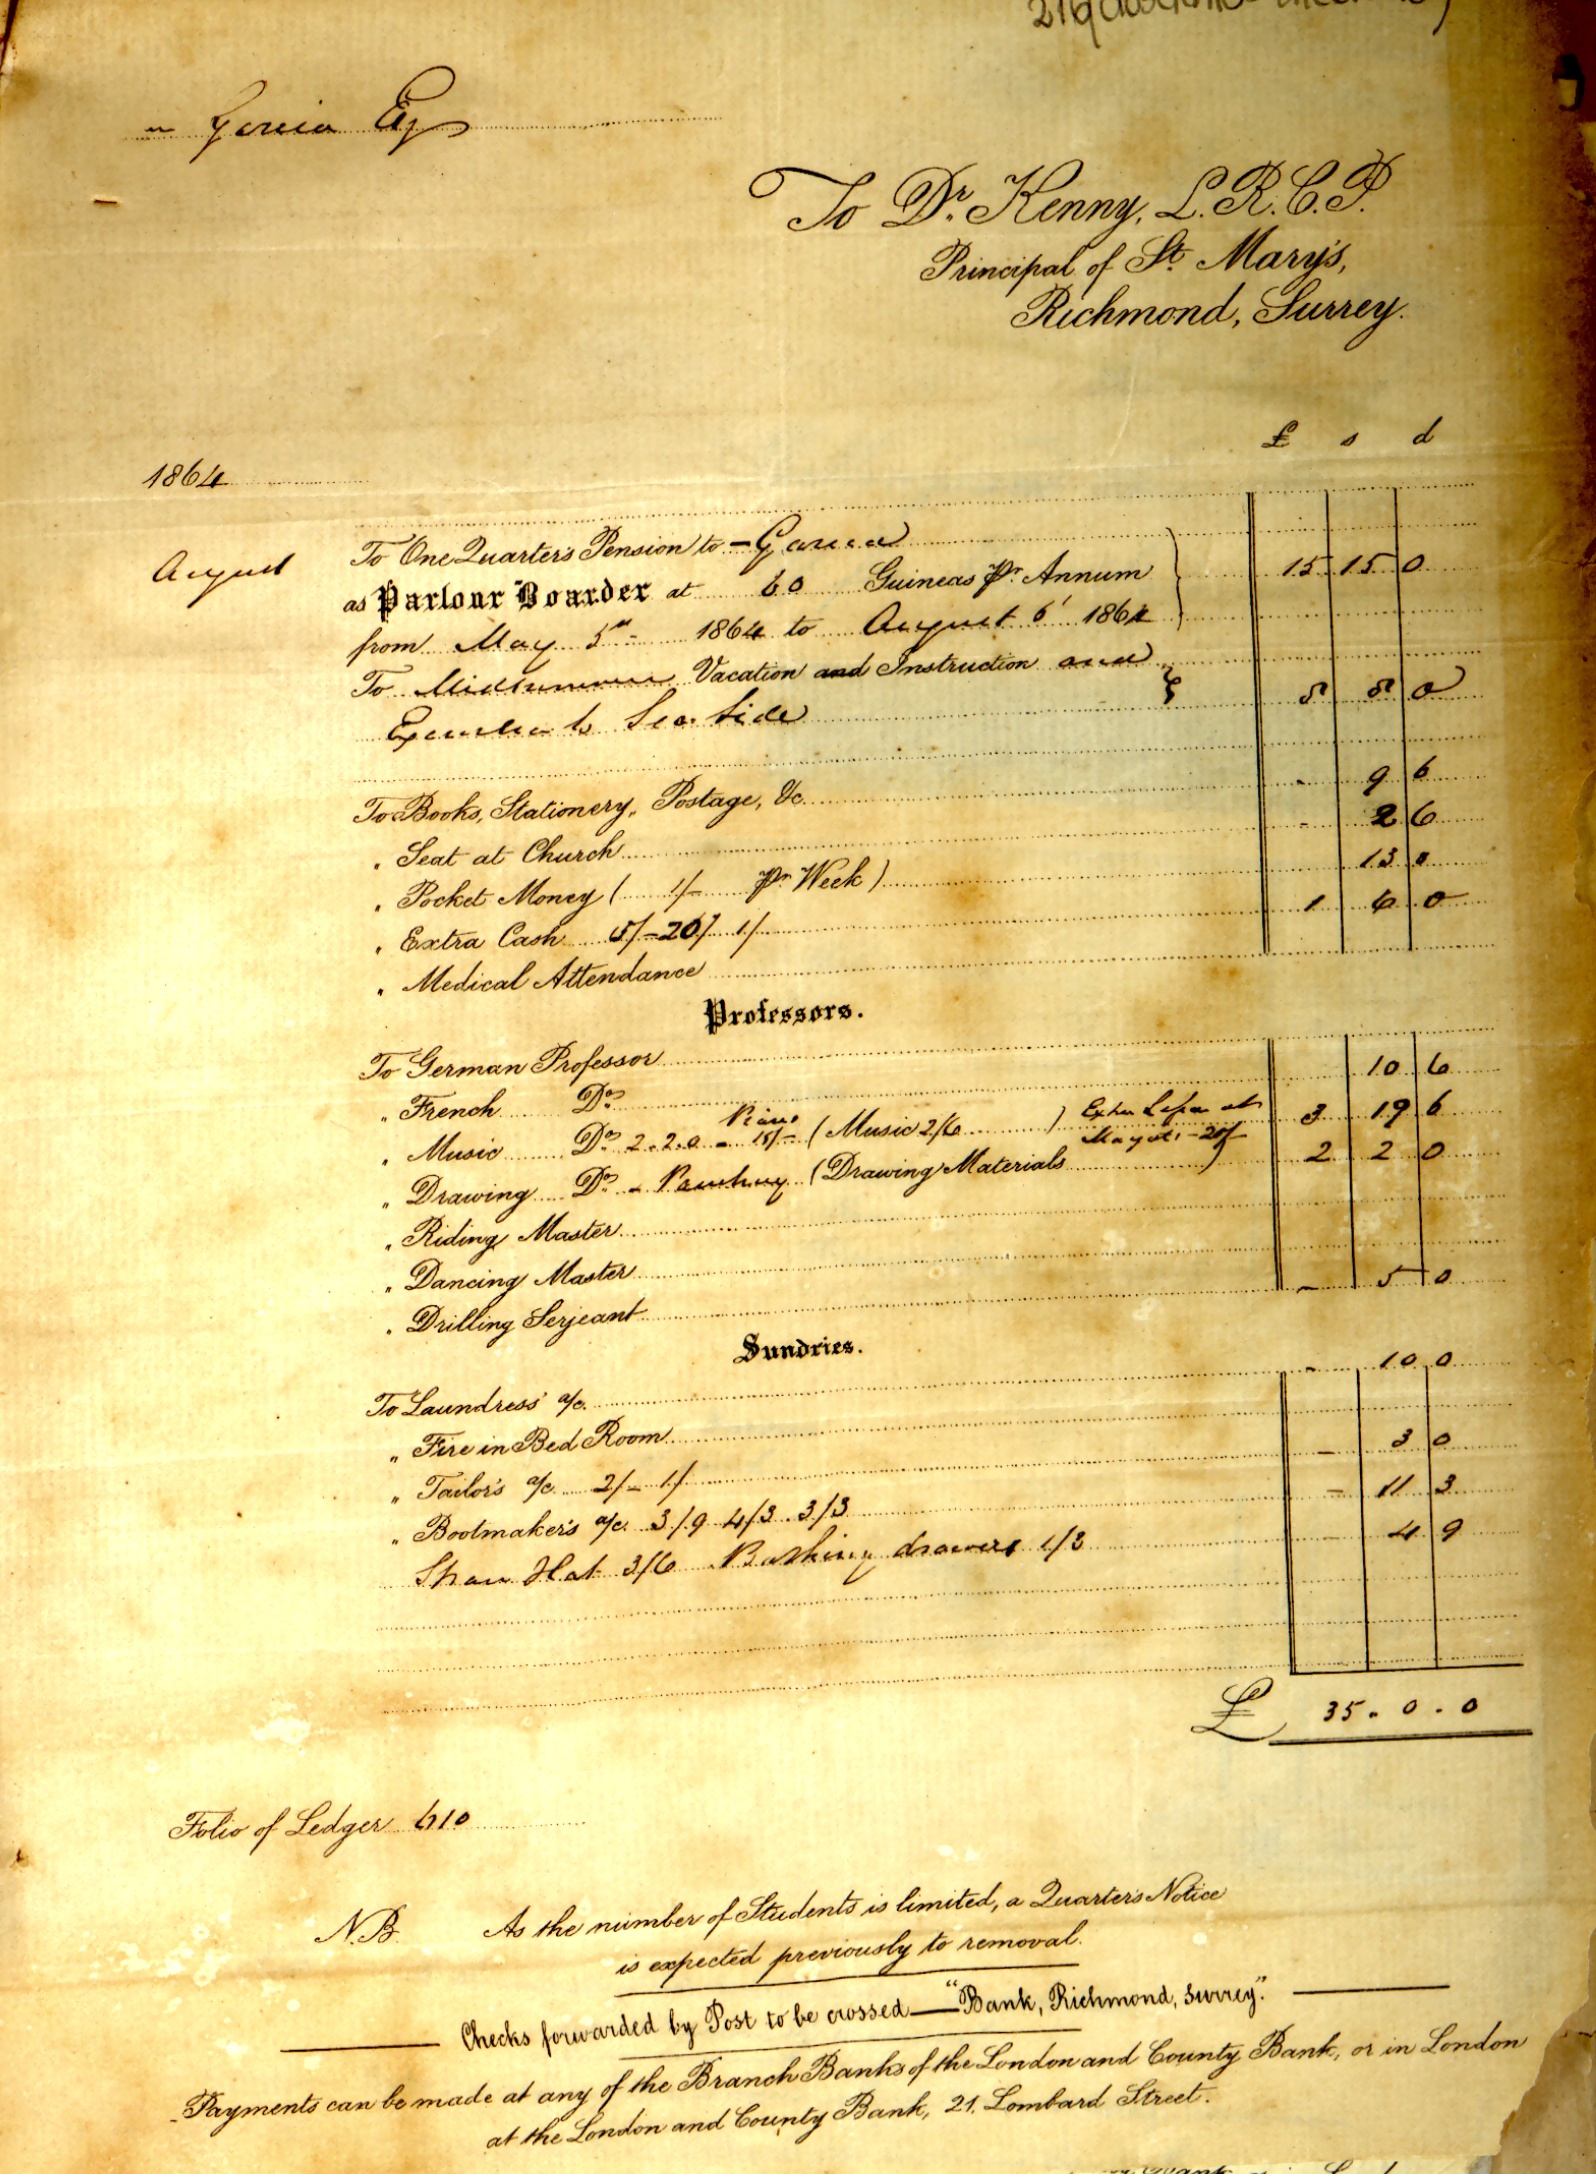 Garcia Esq
To Dr. Kenny, L.R.C.P.
Principal of St. Mary's,
Richmond, Surrey.
£ s d
1864
August To One Quarter's Pension to - Garcia
as Parlour Boarder at 60 Guineas Pr. Annum 15 15 0
from May 5th 1864 to August 6 1864
To Midsummer Vacation and Instruction and
to Sea Side 8 8 0
To Books, Stationery, Postage, &c. - 9 6
" Seat at Church - 2 6
" Pocket Money ( 1/- Pr. Week ) 13 0
" Extra Cash 5/- 20/ 1/ 1 6 0
" Medical Attendance
Professors.
To German Professor
" French Do. 10 6
" Music Do. 2.2.0 - Piano 15/- (Music 2/6 ) Extra at 20/- 3 19 6
" Drawing Do. - (Drawing Materials ) 2 2 0
" Riding Master
" Dancing Master
" Drilling Serjeant - 5 0
Sundries.
To Laundress' a/c. - 10 0
" Fire in Bed Room
" Tailor's a/c. 2/- 1/ - 3 0
" Bootmaker's a/c. 3/9 4/3 . 3/3 - 11 3
Straw Hat 3/6 Bathing drawers 1/3 - 4 9
£ 35 . 0 . 0
Folio of Ledger 610
N.B. As the number of Students is limited, a Quarter's Notice
is expected previously to removal.
Checks forwarded by Post to be crossed — "Bank, Richmond, Surrey."
Payments can be made at any of the Branch Banks of the London and County Bank, or in London
at the London and County Bank, 21. Lombard Street.